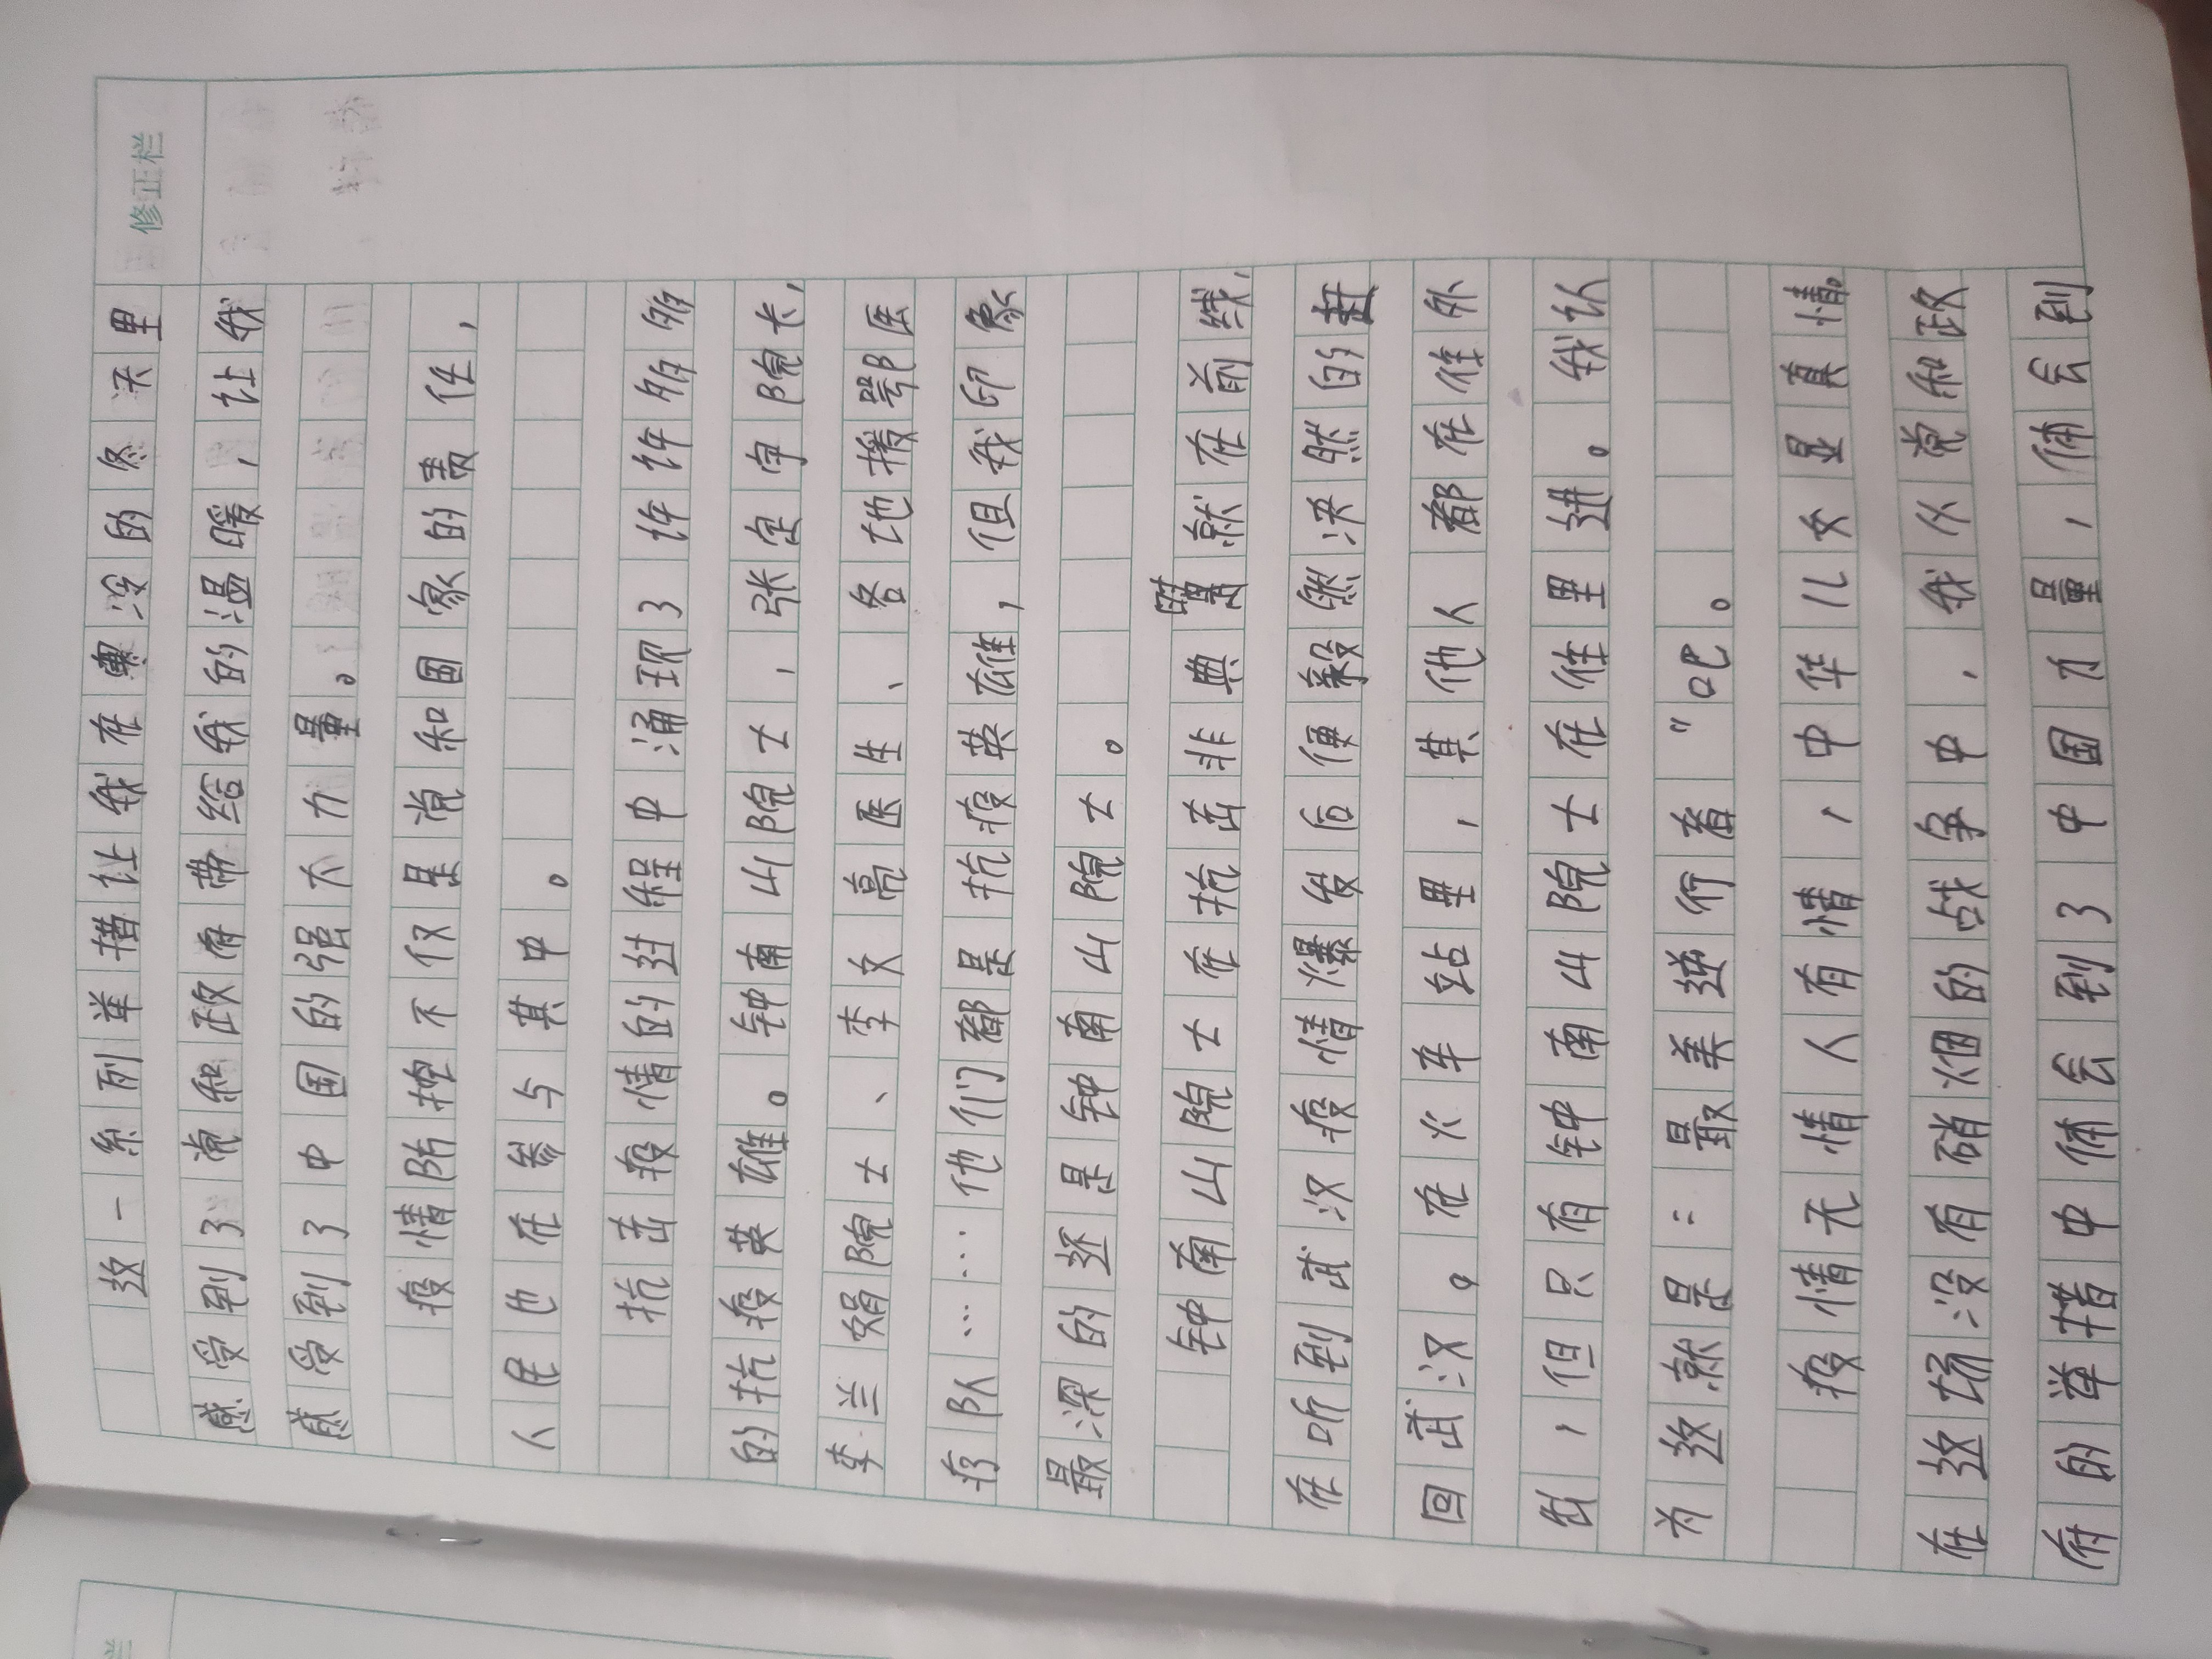 修正栏
这一系列举措让我在寒冷的冬天里
感受到了党和政府带给我的温暖，让我
感受到了中国的强大力量。
疫情防控不仅是党和国家的责任，
人民也在参与其中。
抗击疫情的过程中涌现了许许多多
的抗疫英雄。钟南山院士，张定宇院长，
李兰娟院士、李文亮医生、各地援鄂医
疗队……他们都是抗疫英雄，但我印象
最深的还是钟南山院士。
钟南山院士在抗击非典时就在前线，
在听到武汉疫情爆发后便毅然决然的赶
回武汉。在火车站里，其他人都在往外
出，但只有钟南山院士在往里进。我认
为这就是："最美逆行者"吧。
疫情无情人有情，中华儿女显真情。
在这场没有硝烟的战争中，我从党和政
府的举措中体会到了中国力量，体会到